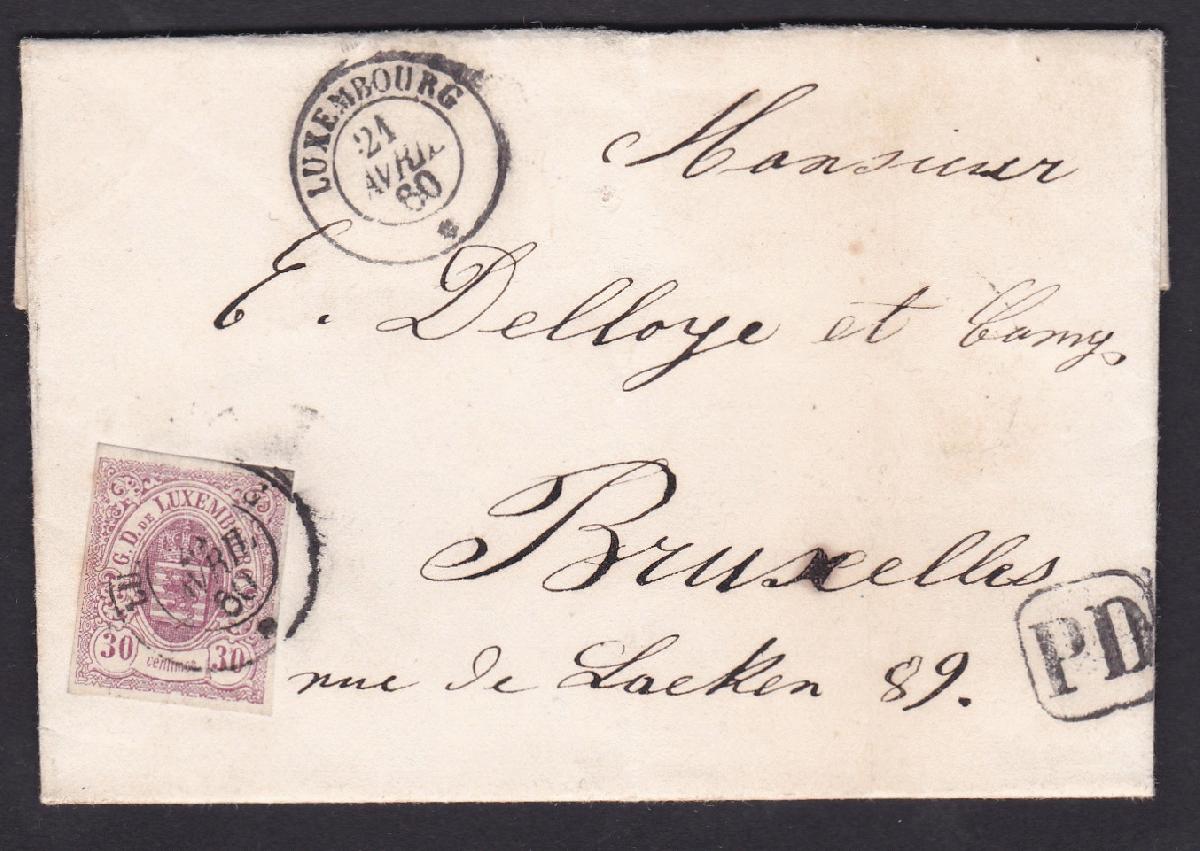 LUXEMBOURG
21
AVRIL
60
Monsieur
E. Delloye et Comp.
G. D. DE LUXEMBOURG
AVRIL
60
30 centimes 30
Bruxelles
rue de Laeken 89.
PD